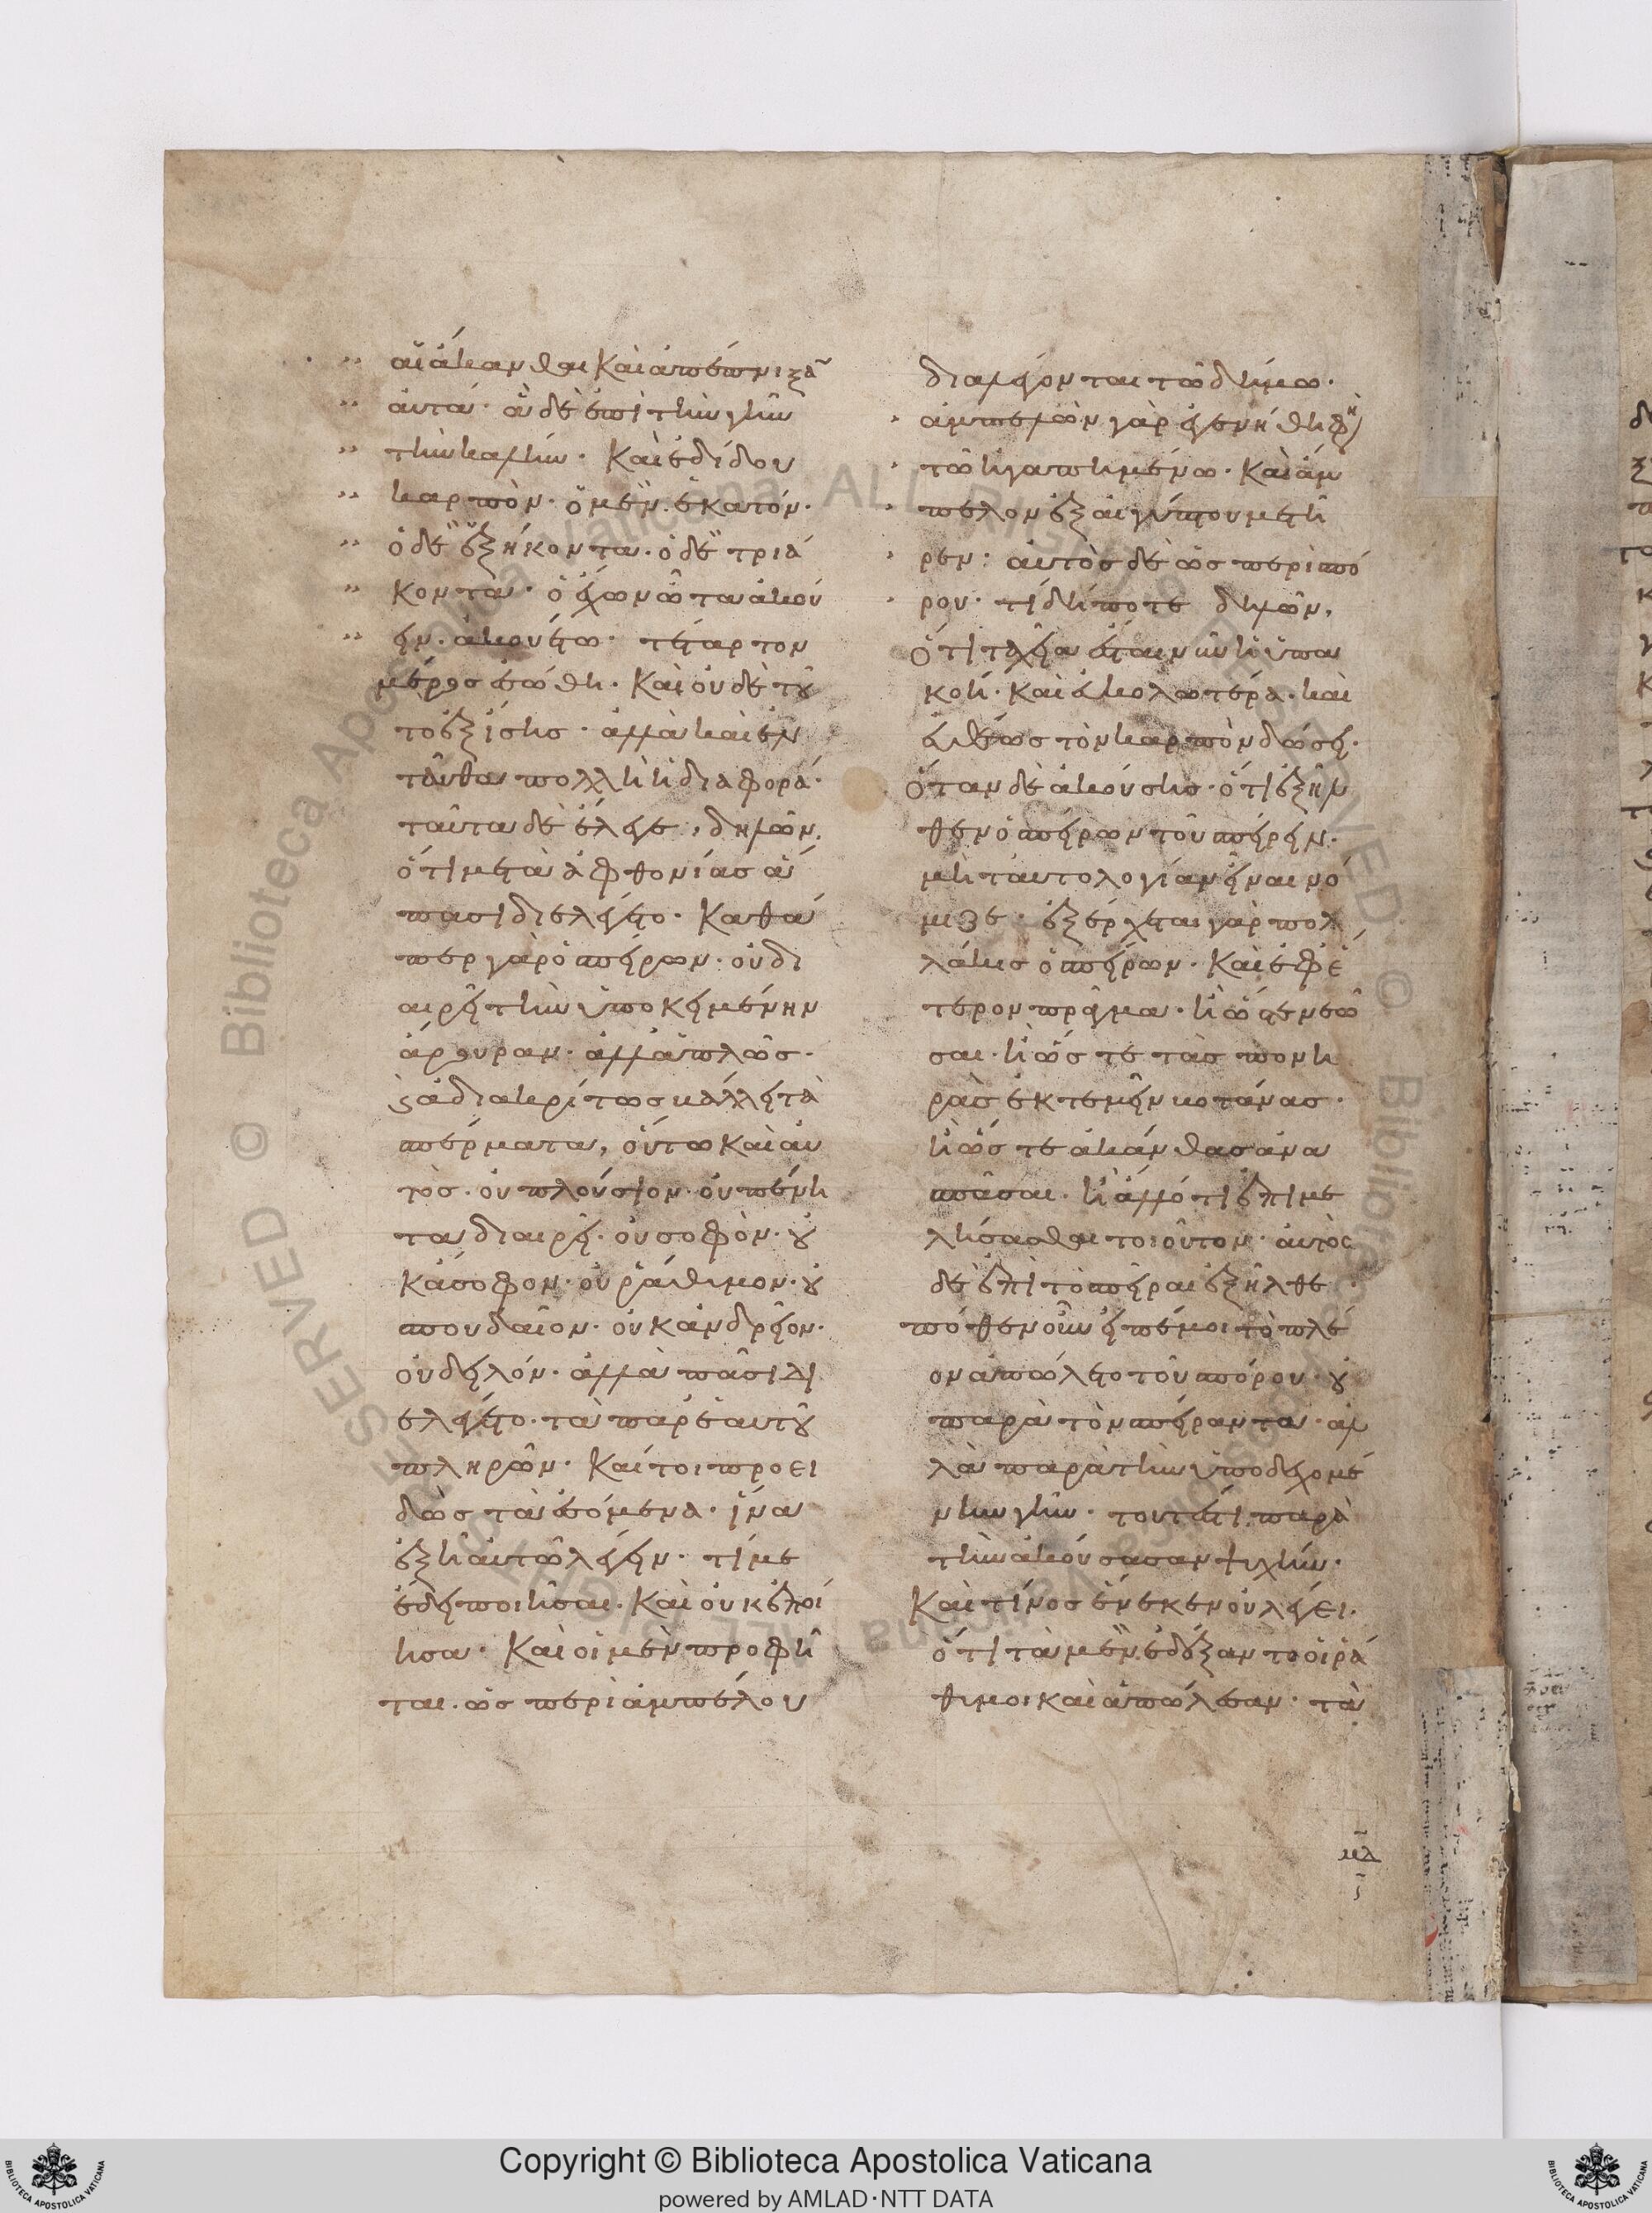 αἱ ἄκανθαι καὶ ἀπέπνιξᾶ
αὐτά· ἃ δὲ ἐπὶ τὴν γῆν
τὴν καλήν· καὶ ἐδίδου
καρπὸν· ὃ μὲν ἑκατόν·
ὃ δὲ ἑξήκοντα· ὃ δὲ τριά
κοντα· ὁ ἔχων ὦτα ἀκού
ειν· ἀκουέτω· τέταρτον
μέρος ἐσώθη· καὶ οὐδὲ τοῦ
το ἐξίσης· ἀλλὰ καὶ ἐν
ταῦθα πολλὴ ἡ διαφορά·
ταῦτα δὲ ἔλεγε, δηλῶν,
ὅτι μετὰ ἀφθονίας ἅ
πασι διελέγετο· Καθά
περ γὰρ ὁ σπείρων· οὐ δι
αιρεῖ τὴν ὑποκειμένην
ἄρουραν· ἀλλ' ἁπλῶς·
ϛ ἀδιακρίτως βάλλει τὰ
σπέρματα, οὕτω καὶ αὐ
τὸς· οὐ πλούσιον· οὐ πένη
τα διαιρεῖ· οὐ σοφὸν· οὐ
κ ἄσοφον· οὐ ῥάθυμον· οὐ
σπουδαῖον· οὐκ ἀνδρεῖον·
οὐ δειλόν· ἀλλὰ πᾶσι δι
ελέγετο· τὰ παρ' ἑαυτοῦ
πληρῶν· Καίτοι προει
δὼς τὰ ἐσόμενα· ἵνα
ἐξῇ αὐτῷ λέγειν· τί με
ἔδει ποιῆσαι· Καὶ οὐκ ἐποί
ησα· Καὶ οἱ μὲν προφῆ
ται· ὡς περὶ ἀμπέλου
διαλέγονται τῷ δήμῳ·
ἀμπελὼν γὰρ ἐγενήθη φη
τῷ ἠγαπημένῳ· Καὶ ἄμ
πελον ἐξ αἰγύπτου μετῆ
ρεν: αὐτὸς δὲ ὡς περὶ σπό
ρου· τί δήποτε δηλῶν,
Ὅτι ταχεῖα ἔσται νῦν ἡ ὑπα
κοή· καὶ εὐκολωτέρα· καὶ
εὐθέως τὸν καρπὸν δώσει·
Ὅταν δὲ ἀκούσῃς· ὅτι ἐξῆλ
θεν ὁ σπείρων τοῦ σπείρειν·
μὴ ταυτολογίαν εἶναι νό
μιζε· ἐξέρχεται γὰρ πολ
λάκις ὁ σπείρων· Καὶ ἐφ' ἕ
τερον πρᾶγμα· ἢ ὥστε νεῶ
σαι· ἢ ὥστε τὰς πονη
ρὰς ἐκτεμεῖν βοτάνας·
ἢ ὥστε ἀκάνθας ἀνα
σπᾶσαι· ἢ ἄλλό τι ἐπιμε
λήσασθαι τοιοῦτον· αὐτὸς
δὲ ἐπὶ τὸ σπεῖραι ἐξῆλθε·
πόθεν οὖν εἰπέ μοι τὸ πλέ
ον ἀπώλετο τοῦ σπόρου· οὐ
παρὰ τὸν σπείραντα· ἀλ
λὰ παρὰ τὴν ὑποδεχομέ
νην γῆν· τουτέστι παρὰ
τὴν ἀκούσασαν ψυχήν·
Καὶ τίνος ἕνεκεν οὐ λέγει·
ὅτι τὰ μὲν ἐδέξαντο οἱ ῥά
θυμοι καὶ ἀπώλεσαν· τὰ
Copyright © Biblioteca Apostolica Vaticana
powered by AMLAD·NTT DATA